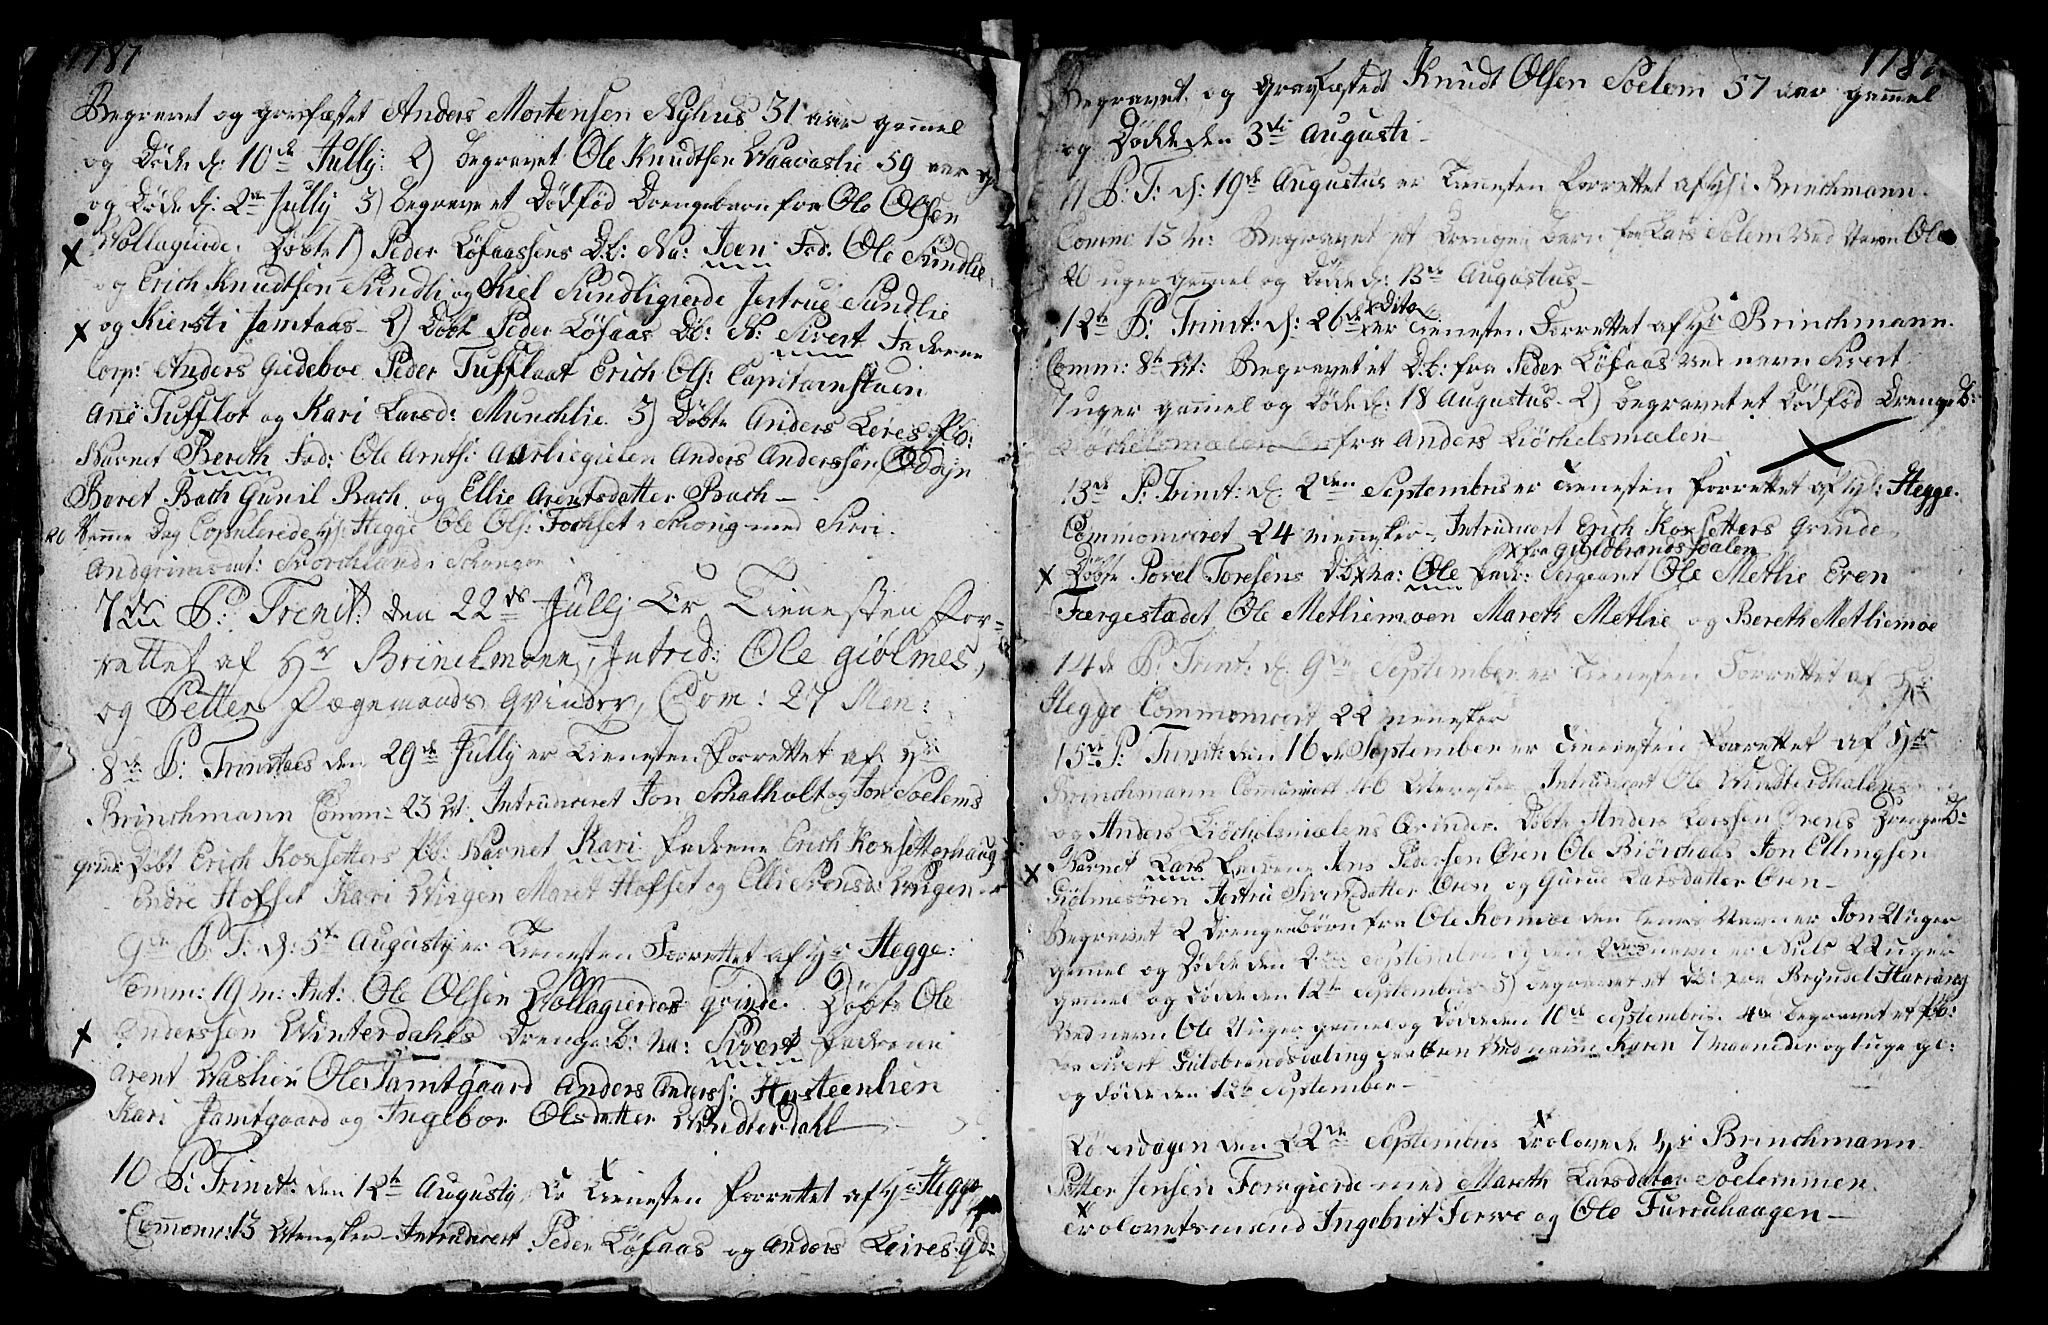 1787
Begravet og gravfæstet Anders Mortensen Nyhus 31 aar gam̄el
og Døde d: 10de Jully: 2) begravet Ole Knudtsen Waavaslie 59 aar
og Døde d: 2de Jully 3) begravet et Dødfød Drengebarn fra Ole Olsen
Wollagierde. Døbte 1) Peder Løfaassens D.b: Na: Joen Fad. Ole Sundlie
og Erich Knudtsen Sundli og Kiel Sundligierde Jertrue Sundlie
og Kiersti Jamtaas 2) Døbt Peder Løfaas Db: N: Sivert Fadderne
Corp: Anders Giedeboe Peder Tufflaat Erich Ols: Capitainstuen
Ane Tufflot og Kari Larsd: Munchlie 3) Døbte Anders Leres Pb:
Navnet Bereth Fad: Ole Arnts: Aarliegielen Anders Anderssen Odøjn
Beret Bach Gunil Bach og Ellie Arentsdatter Bach
Samme Dag Copulerede hr: Hegge Ole Ols: Fochset i Skong med Siri
Andgrimsdat: Storchland i Schaugen
7de P: Trenit: den 22de Jully Er Tienesten For-
rettet af Hr Brinchmann, Introd: Ole Giølmes,
og Petter Fægemands Qvinder, Com: 27 Men:
8de P: Trinitaes den 29de Jully er Tienesten Forrettet af Hr
Brinchmann Comm: 23 M: Introduceret Jon Schalholt og Jon Soelems
qvin: Døbt Erich Konsetters Pb: Navnet Kari Fadderne Erich Konsetterhaug
Endre Hofset Kari Wirgen Maret Hofset og Elli Svensd: Wirgen
9de P: T: d: 5te Augusty er Tienesten Forrettet af Hr Hegge:
Comm: 19 M: Int: Ole Olsen Wollagierdes Qvinde. Døbte Ole
Anderssen Winterdahls Drenge:b: Na: Sivert Fadderne
Arent Waslien Ole Jamtgaard Anders Anderss: Husteenlien
Kari Jamtgaard og Ingebor Olsdatter Windterdahl
10 P: Trinit: den 12te Augusty Er Tienesten Forrettet af Hr Hegge
Com̄onic: 13 Menesker Introduceret Peder Løfaas og Anders Leires qd:
1787
Begravet og Gravfæstet Knudt Olsen Soelem 57 aar gam̄el
og Døde den 3di Augusti
11 P: T: d: 19de Augustus er Tienesten Forrettet af Hr: Brinchmann
Comm: 13 M: Begravet et Drenge Barn fra Lars Solem Ved Navn Ole
20 uger gam̄el og Døde d: 13de Augustus
12te P: Trinit: d: 26de Dito er Tienesten Forrettet af Hr Brinchmann
Comm: 8te M: Begravet et D:b: fra Peder Løfaas ved navn Sivert
7 uger gam̄el og Døde d: 18 Augustus 2) begravet et Dødfød Drenge B:
fra Anders Liøchelsmælen
13de P: Trinit: d: 2den Septembris er Tienesten Forrettet af Hr: Hegge
Commoniceret 24 mennesker. Introduceret Erich Konsetters Qvinde
fra Guldbrandsdalen
Døbte Povel Toresens D:b: Na: Ole Fadr: Sergeant Ole Methie Eren
Færgestædet Ole Methiemoen Mareth Methie og Bereth Methiemoe
14de P: Trint: d: 9de September er Tienesten Forrettet af Hr
Hegge Commoniceret 22 menesker
15de P: Trinit: den 16de September er Tienesten Forrettet af Hr
Brinchmann Comoniceret 46 Menesker Introduceret Ole Windterdhalens
og Anders Liøchelsmælens Qvinder. Døbte Anders Larssen Ørens Drenge B:
Navnet Lars Fadderne Jens Pedersen Øren Ole Biørchaas Jon Ellingsen
Giølmesøren Jertru Sivertdatter Øren og Gurue Larsdatter Øren
Begravet 2 Drengebørn fra Ole Konmoe den Enes Navn er Jon uger
gemel og Døde den 2den September og den 2dens navn er Niuls 2 uger
gemel og Døde den 12te Septembris 3) begravet et Db: fra Brynsel Harrang
Ved navn Ole uger gemel og Døde den 10de Septembris. 4de begravet et Pb:
fra Sivert Guldbrandsdaling Ved navn Karen 7 maaneder og 1 uge ge:
og Døde den 12te September
Løverdagen den 22de Septembris Trolovede Hr Brinchmann
Petter Jensen Forrgierde med Mareth Larsdater Soelemmen
Trolovetsmænd Ingebrit Ferve og Ole Furruhaugen